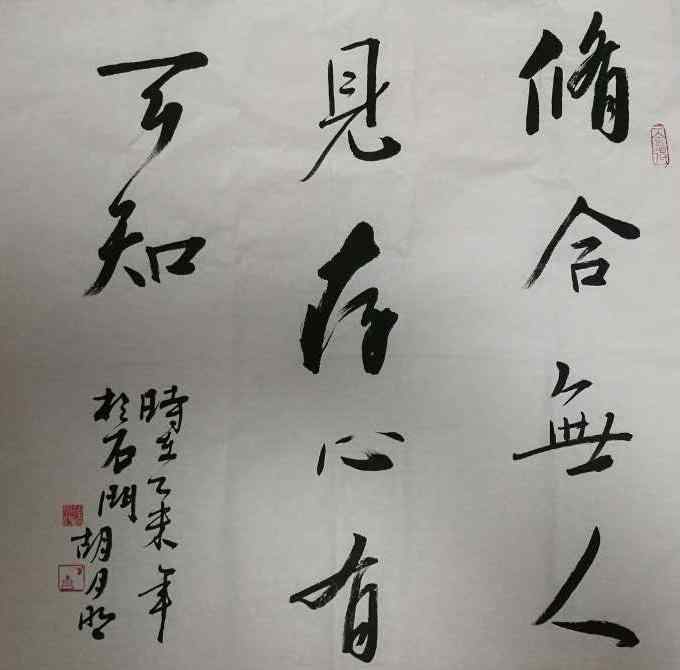 脩合無人
見存心有
天知
時在乙未年
於石門 胡月明